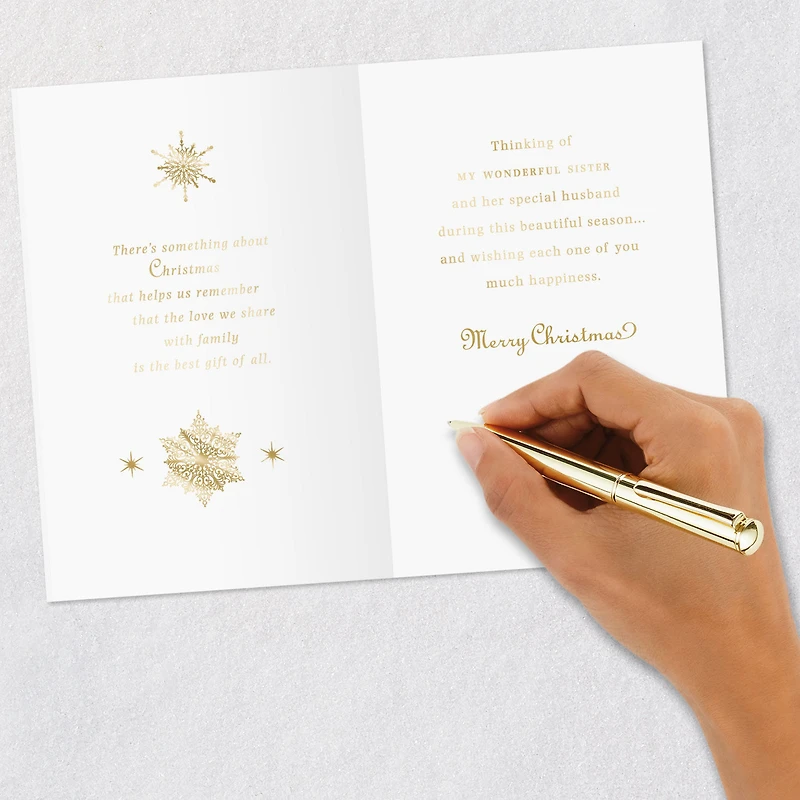 There's something about
Christmas
that helps us remember
that the love we share
with family
is the best gift of all.
Thinking of
MY WONDERFUL SISTER
and her special husband
during this beautiful season...
and wishing each one of you
much happiness.
Merry Christmas